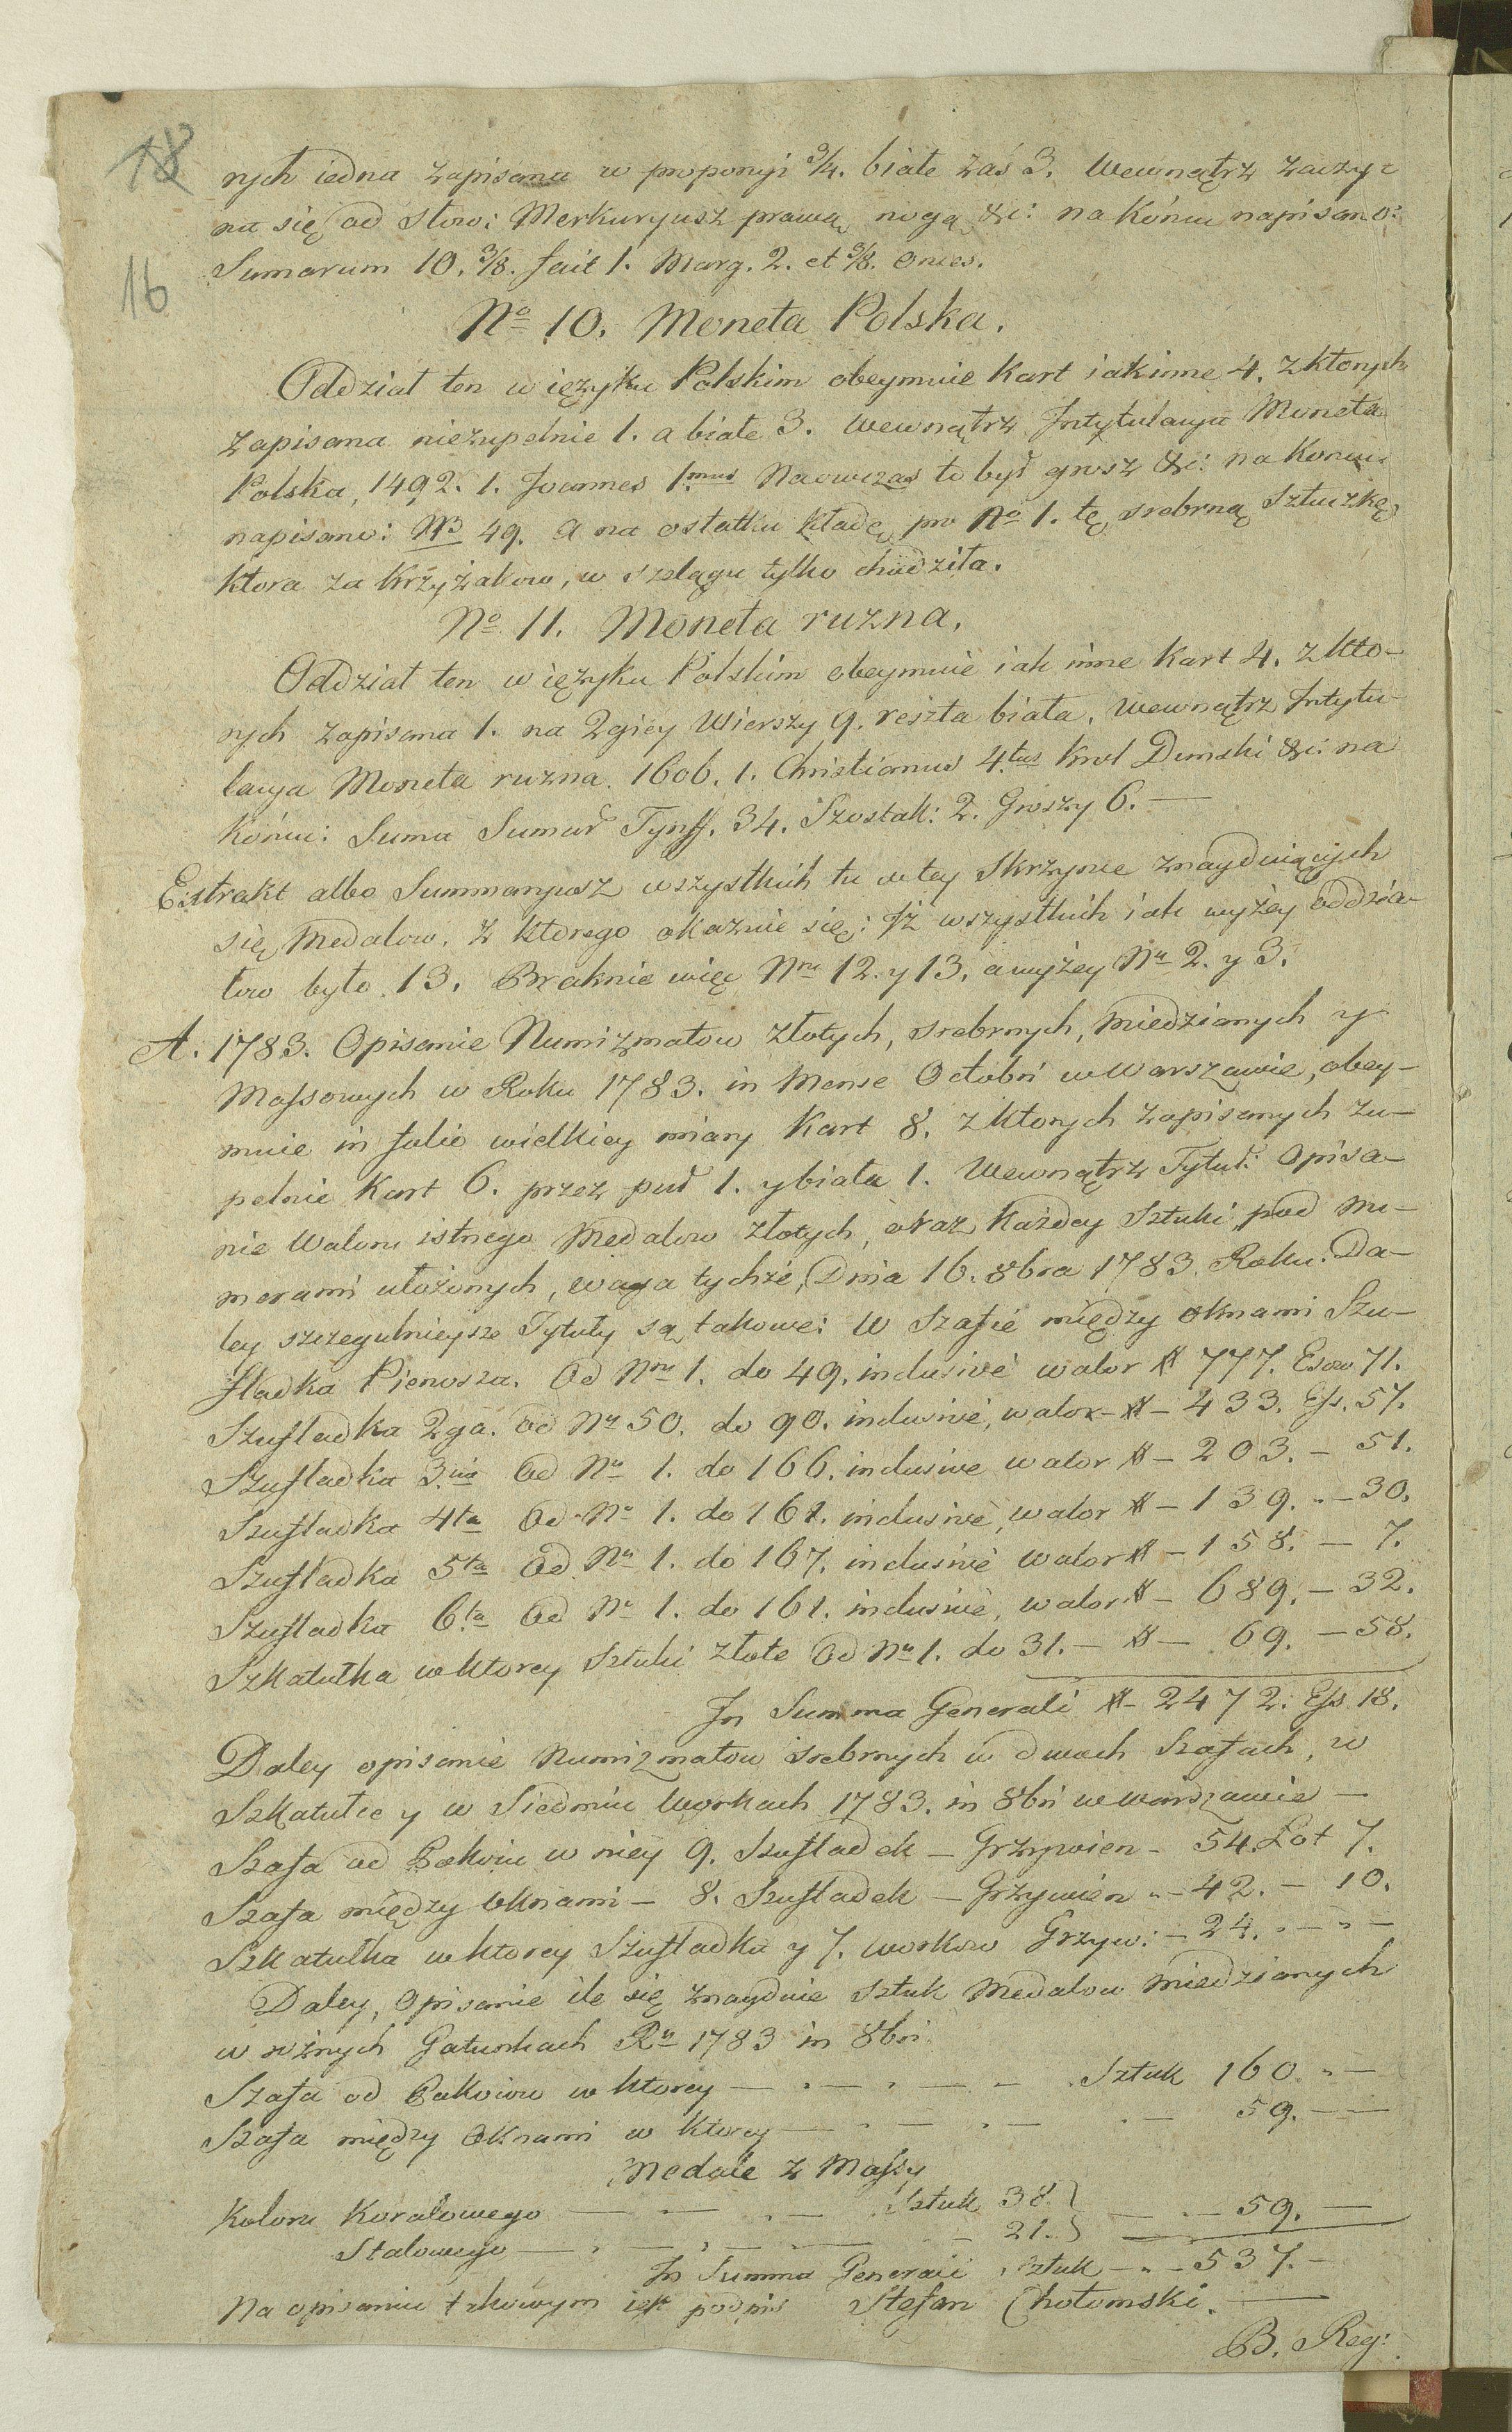 18
rych iedna zapisana w propozyi 3/4. białe zaś 3. Wewnątrz zaczy=
na się od słow: Merkuryusz prawą nogą &c: na końcu napisano:
16
Sumarum 10. 3/8. facit 1. Marg. 2. et 3/8. onces.
No 10. Moneta Polska.
Oddział ten w ięzyku Polskim obeymuie Kart iak inne 4. z ktorych
zapisana niezupełnie 1. a białe 3. Wewnątrz Intytulacya Moneta
Polska, 1492. 1. Joannes 1mus Naowczas to był grosz &c: na Koncu
napisano: NB 49. a na ostatku kładę pro No 1. tę srebrną Sztuczkę,
ktora za Krzyżakow, w szelągu tylko chodziła.
No 11. Moneta ruzna.
Oddział ten w ięzyku Polskim obeymuie iak inne Kart 4. z kto-
rych zapisana 1. na 2giey Wierszy 9. reszta biała. Wewnątrz Intytu-
lacya Moneta ruzna. 1606. 1. Christianus 4tus Krol Dunski &c: na
Końcu: Suma Sumar Tynff. 34. Szostak: 2. Groszy 6. —
Extrakt albo Summaryusz wszystkich tu w tey Skrzynce znayduiących
się Medalow. z ktorego okazuie się: Iż wszystkich iak wyżey oddzia-
łow było 13. Braknie więc Nru 12. y 13. a wyżey Nu 2. y 3.
A. 1783. Opisanie Numizmatow złotych, srebrnych, miedzianych y
Massowych w Roku 1783. in Mense Octobri w Warszawie, obey-
muie in folio wielkiey miary Kart 8. z ktorych zapisanych zu-
pełnie Kart 6. przez puł 1. y biała 1. Wewnątrz Tytuł: Opisa-
nie Waloru istnego Medalow złotych, oraz każdey Sztuki pod Nu-
merami ułożonych, waga tychże, Dnia 16. 8bra 1783. Roku. Da-
ley szczegulnieysze Tytuły są takowe: W Szafie między oknami Szu-
fladka Pierwsza. Od Nru 1. do 49. inclusivè walor # 777. Esow 71.
Szufladka 2ga. Od Nu 50. do 90. inclusivè, walor - # - 433. Ess. 57.
Szufladka 3cia Od Nu 1. do 166. inclusive walor # - 203. - 51.
Szufladka 4ta Od Nu 1. do 161. inclusivè, walor # - 139. - 30.
Szufladka 5ta Od Nu 1. do 167. inclusivè walor # - 158. - 7.
Szufladka 6ta Od Nu 1. do 161. inclusivè, walor # - 689. - 32.
Szkatułka w ktorey Sztuki złote Od Nu 1. do 31. - # - 69. - 58.
In Summa Generali # - 2472. Ess. 18.
Daley opisanie Numizmatow srebrnych w dwuch Szafach, w
Szkatułce y w Siedmiu Workach 1783. in 8bri w Warszawie -
Szafa od Pokoiu w niey 9. Szufladek - Grzywien - 54. Lot 7.
Szafa między Oknami - 8. Szufladek - Grzywien - 42. - 10.
Szkatułka w ktorey Szufladka y 7. workow Grzyw: - 24. - -
Daley, Opisanie ile się znayduie Sztuk Medalow miedzianych
w rożnych Gatunkach Ru 1783 in 8bri
Szafa od Pokoiow w ktorey - - - Sztuk 160. -
Szafa między Oknami w ktorey - - - 59. -
Medale z Massy
Koloru Koralowego - - - Sztuk 38 } - - 59. -
Stalowego - - - 21. }
In Summa Generali Sztuk - - 537. -
Na opisaniu takowym iest podpis Stefan Chołomski. -
B. Reg: